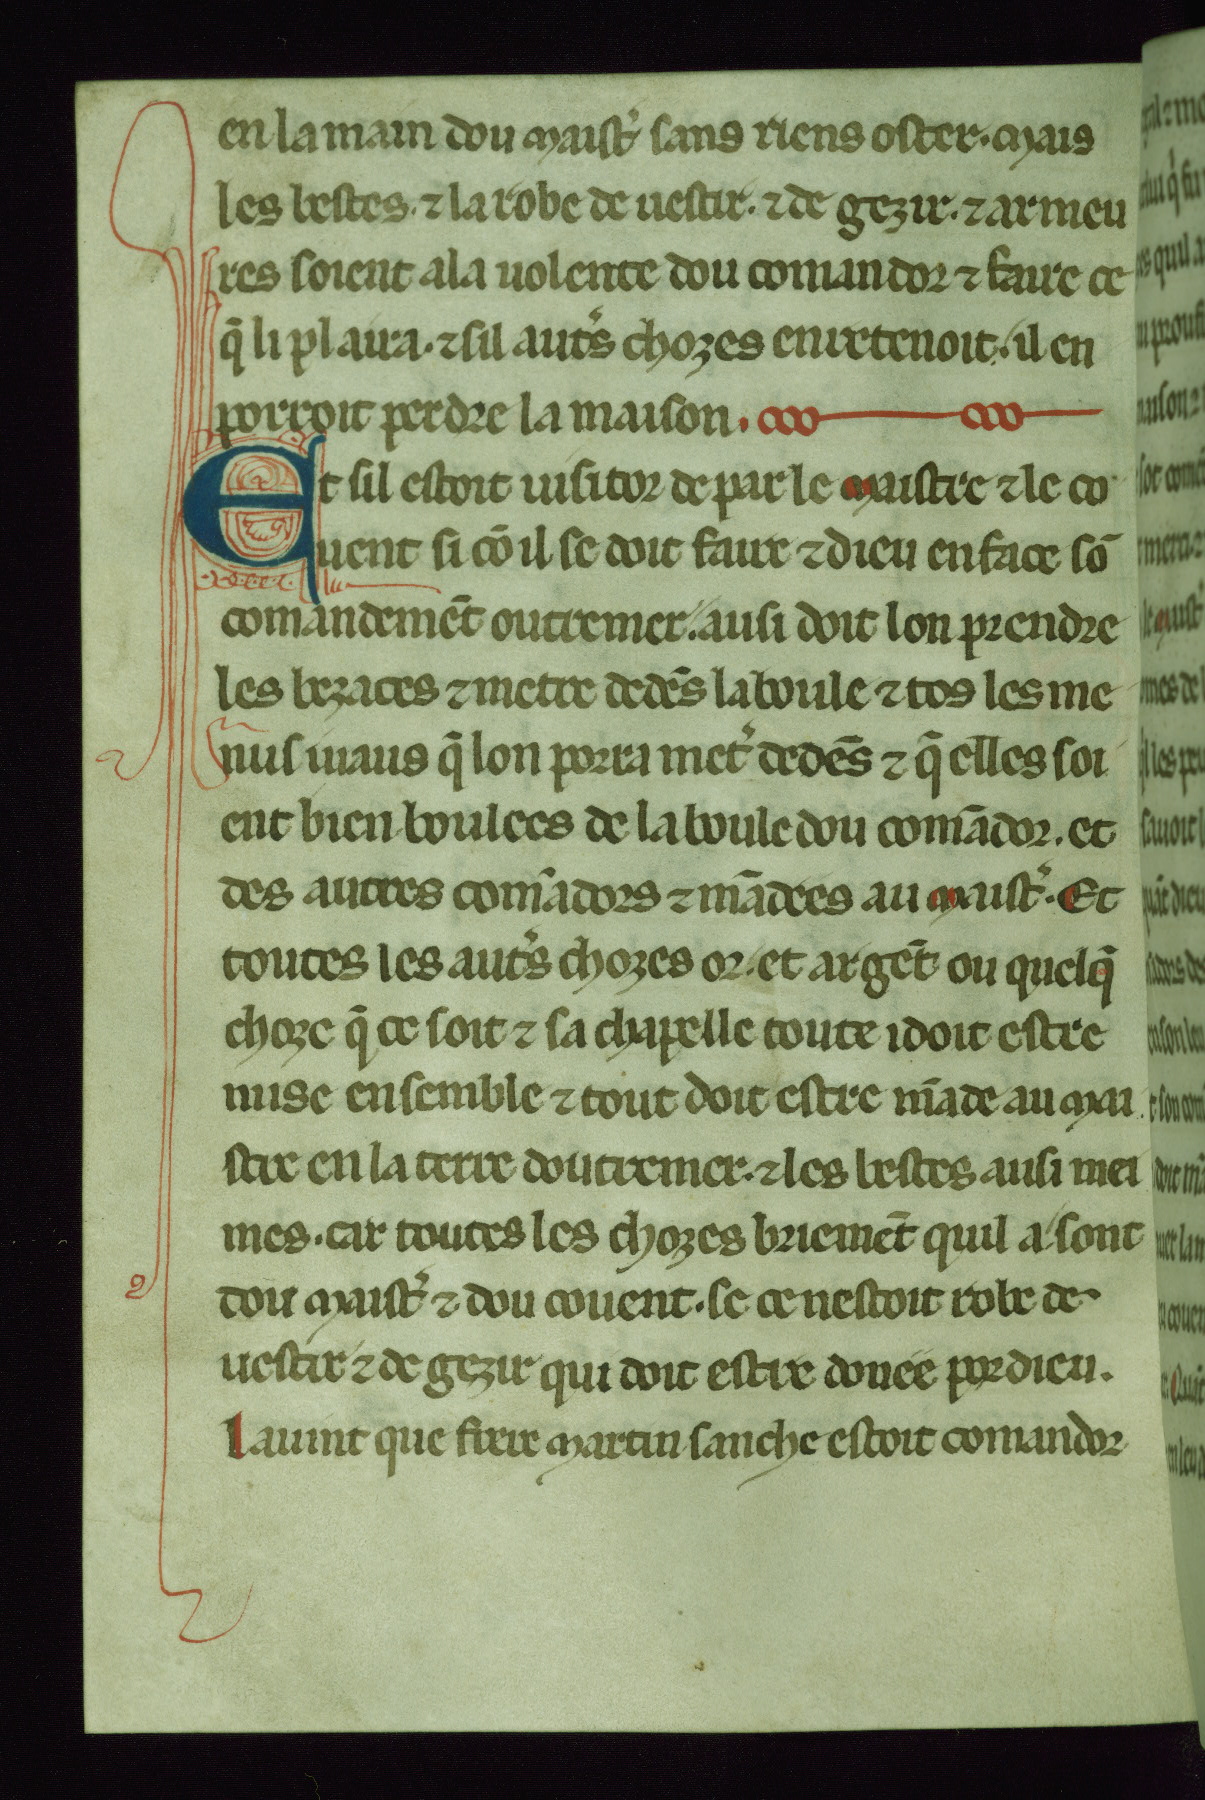 en la main dou maist᾽ sans riens oster. mais
les bestes. ⁊ la robe de uestir. ⁊ de gezir. ⁊ armeu
res soient a la uolente dou comandor ⁊ faire ce
q̄ li plaira. ⁊ sil aut᾽s chozes en retenoit. il en
porroit perdre la maison.
Et sil estoit uisitor de par le maistre ⁊ le co
uent si cō il se doit faire ⁊ dieu en face sō
comandemēt outremer. ausi doit lon prendre
les bezaces ⁊ metre dedēs la boule ⁊ tos les me
nus iuaus q̄ lon porra met᾽ dedēs ⁊ q̄ elles soi
ent bien boulees de la boule dou comādor. et
des autres comādors ⁊ mādees au maist᾽. Et
toutes les aut᾽s chozes or. et argēt ou quelq̄
choze q̄ ce soit ⁊ sa chapelle toute i doit estre
mise ensemble ⁊ tout doit estre māde au mai
stre en la terre doutremer. ⁊ les bestes ausi mei
mes. car toutes les chozes briemēt quil a sont
dou maist᾽ ⁊ dou couent. se ce nestoit robe de
uestir ⁊ de gezir qui doit estre donee por dieu.
I auint que frere martin sanche estoit comandor